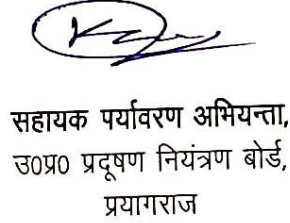 सहायक पर्यावरण अभियन्ता,
उ0प्र0 प्रदूषण नियंत्रण बोर्ड,
प्रयागराज